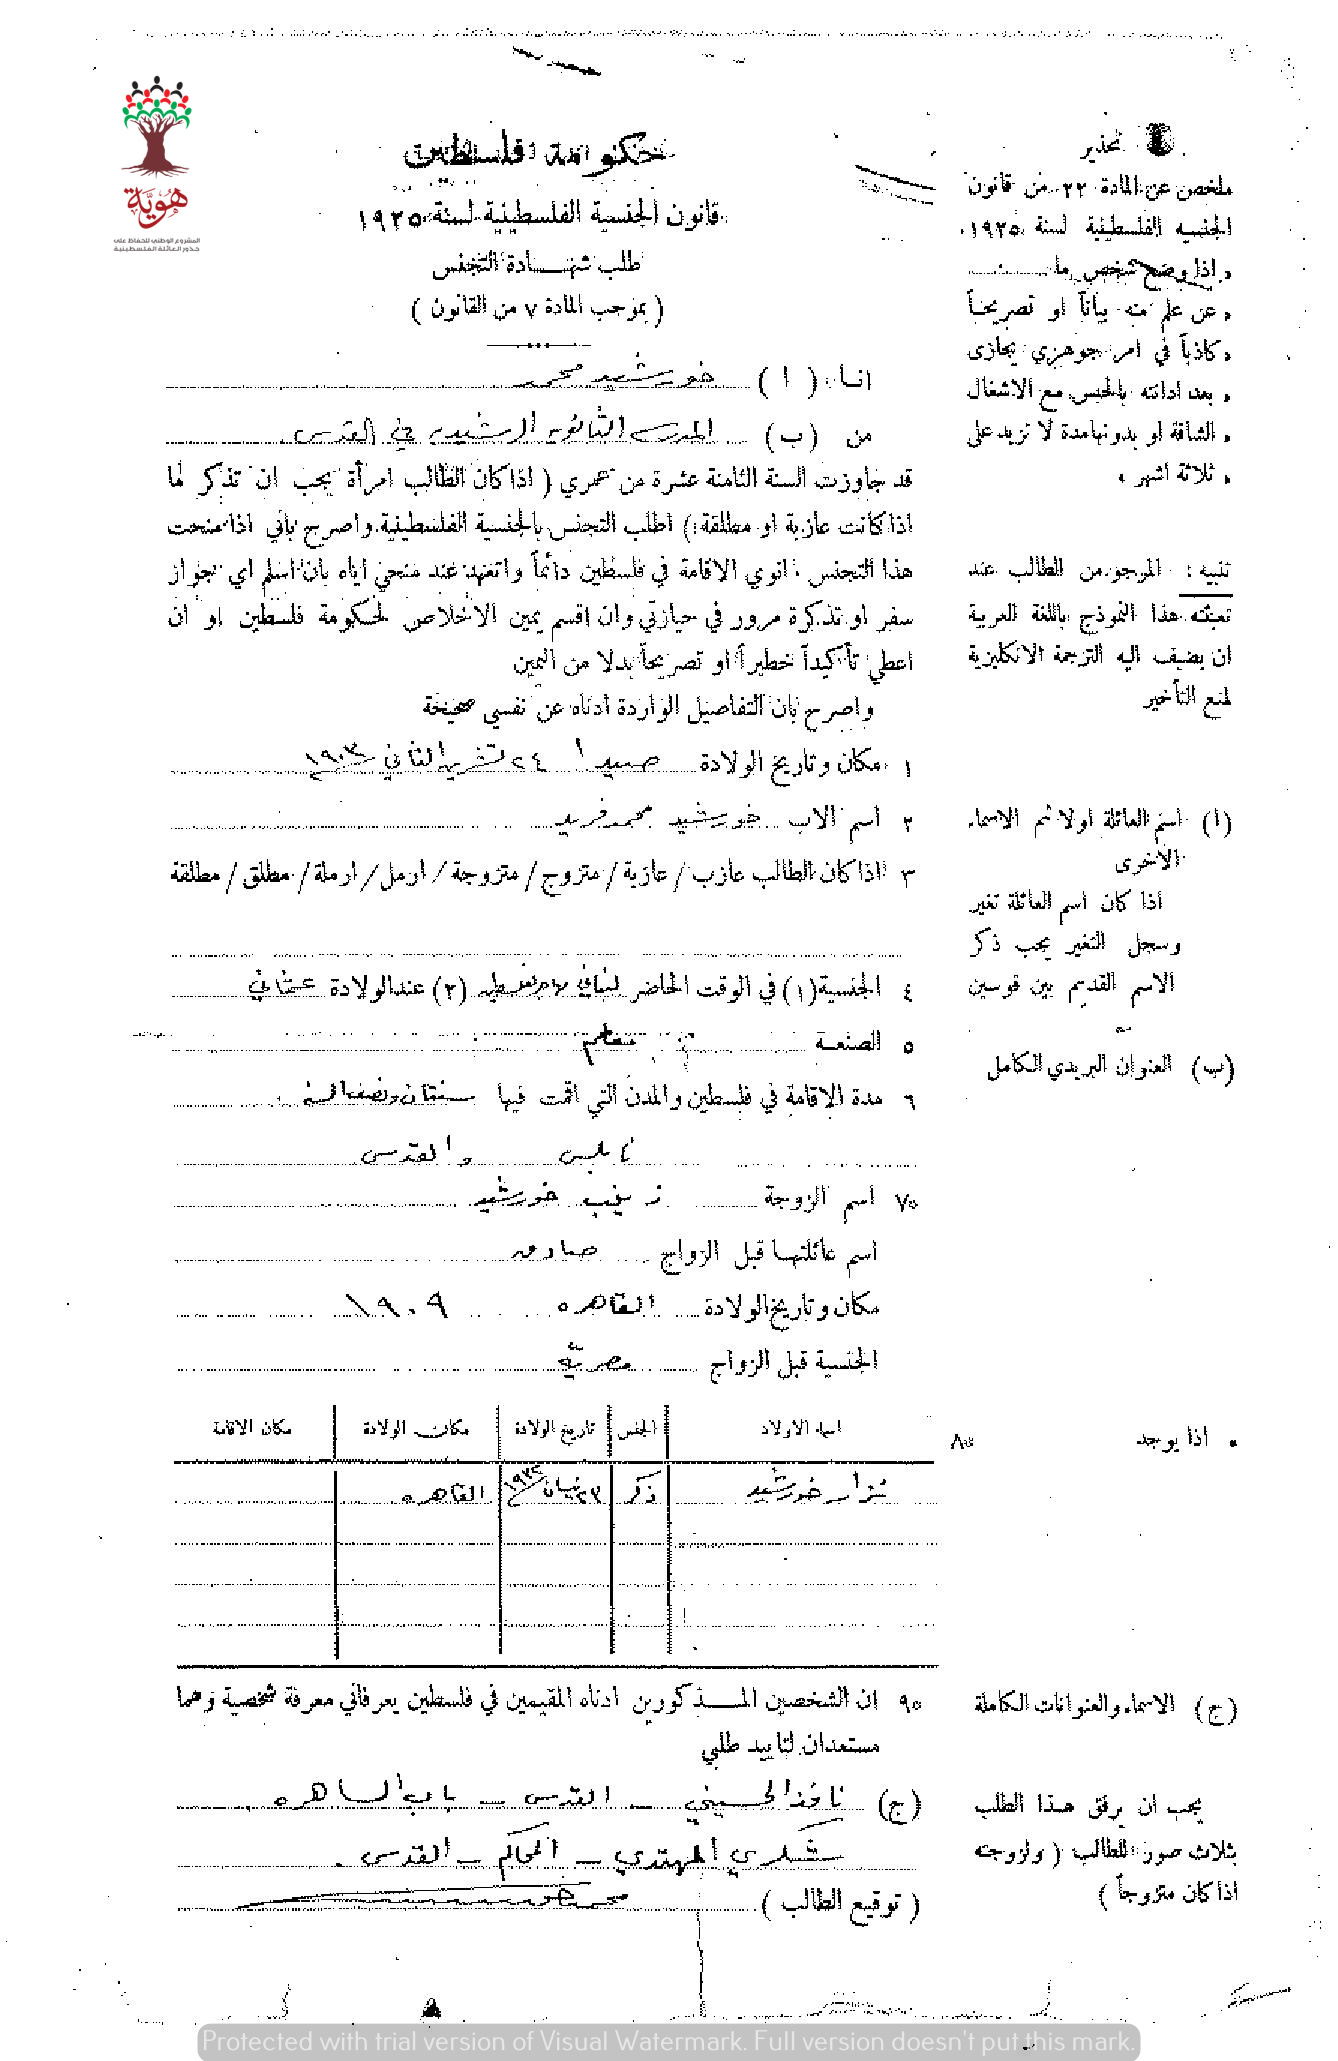 هوية
المشروع الوطني للحفاظ على
جذور العائلة الفلسطينية
حكومة فلسطين
قانون الجنسية الفلسطينية لسنة ١٩٢٥
طلب شهادة التجنس
( بموجب المادة ٧ من القانون )
تحذير
ملخص عن المادة ٢٢ من قانون
الجنسيه الفلسطينية لسنة ١٩٢٥.
اذا وضع شخص ما
عن علم منه بياناً او تصريحاً
كاذباً في امر جوهري يجازى
بعد ادانته بالحبس مع الاشغال
الشاقة او بدونها مدة لا تزيد على
ثلاثة اشهر .
انا ( ا ) خورشيد محمد
من (ب) المدرسة الثانوية الرشيدية في القدس
قد جاوزت السنة الثامنة عشرة من عمري ( اذا كان الطالب امرأة يجب ان تذكر لما
اذا كانت عازبة او مطلقة ) اطلب التجنس بالجنسية الفلسطينية واصرح باني اذا منحت
هذا التجنس انوي الاقامة في فلسطين دائماً واتعهد عند منحي اياه بان اسلم اي جواز
سفر او تذكرة مرور في حيازتي وان اقسم يمين الاخلاص لحكومة فلسطين او ان
اعطي تأكيداً خطيراً او تصريحاً بدلا من اليمين
واصرح بان التفاصيل الواردة ادناه عن نفسي صحيحة
تنبيه : المرجو من الطالب عند
تعبئته هذا النموذج باللغة العربية
ان يضيف اليه الترجمة الانكليزية
لمنع التأخير
١ مكان وتاريخ الولادة صيدا ٢٤ تشرين الثاني ١٩٠٣
٢ اسم الاب خورشيد محمد فريد
٣ اذا كان الطالب عازب / عازبة / متزوج / متزوجة / ارمل / ارملة / مطلق / مطلقة
٤ الجنسية (١) في الوقت الحاضر لبناني (٢) عند الولادة عثماني
٥ الصنعة معلم
٦ مدة الاقامة في فلسطين والمدن التي اقمت فيها سنتان ونصف السنة
نابلس والقدس
(ا) اسم العائلة اولا ثم الاسماء
الاخرى
اذا كان اسم العائلة تغير
وسجل التغير يجب ذكر
الاسم القديم بين قوسين
(ب) العنوان البريدي الكامل
٧ اسم الزوجة زينب خورشيد
اسم عائلتها قبل الزواج صادق
مكان وتاريخ الولادة القاهره ١٩٠٩
الجنسية قبل الزواج مصرية
اذا يوجد
٨ اسماء الاولاد الجنس تاريخ الولادة مكان الولادة مكان الاقامة
نزار خورشيد ذكر ٢٣ نيسان ١٩٣٢ القاهره
٩ ان الشخصين المذكورين ادناه المقيمين في فلسطين يعرفاني معرفة شخصية وهما
مستعدان لتاييد طلبي
(ج) نافذ الحسيني – القدس – باب الساهره
شكري المهتدي – المحاكم – القدس .
( توقيع الطالب )
(ج) الاسماء والعنوانات الكاملة
يجب ان يرفق هذا الطلب
بثلاث صور للطالب ( ولزوجته
اذا كان متزوجاً )
Protected with trial version of Visual Watermark. Full version doesn't put this mark.